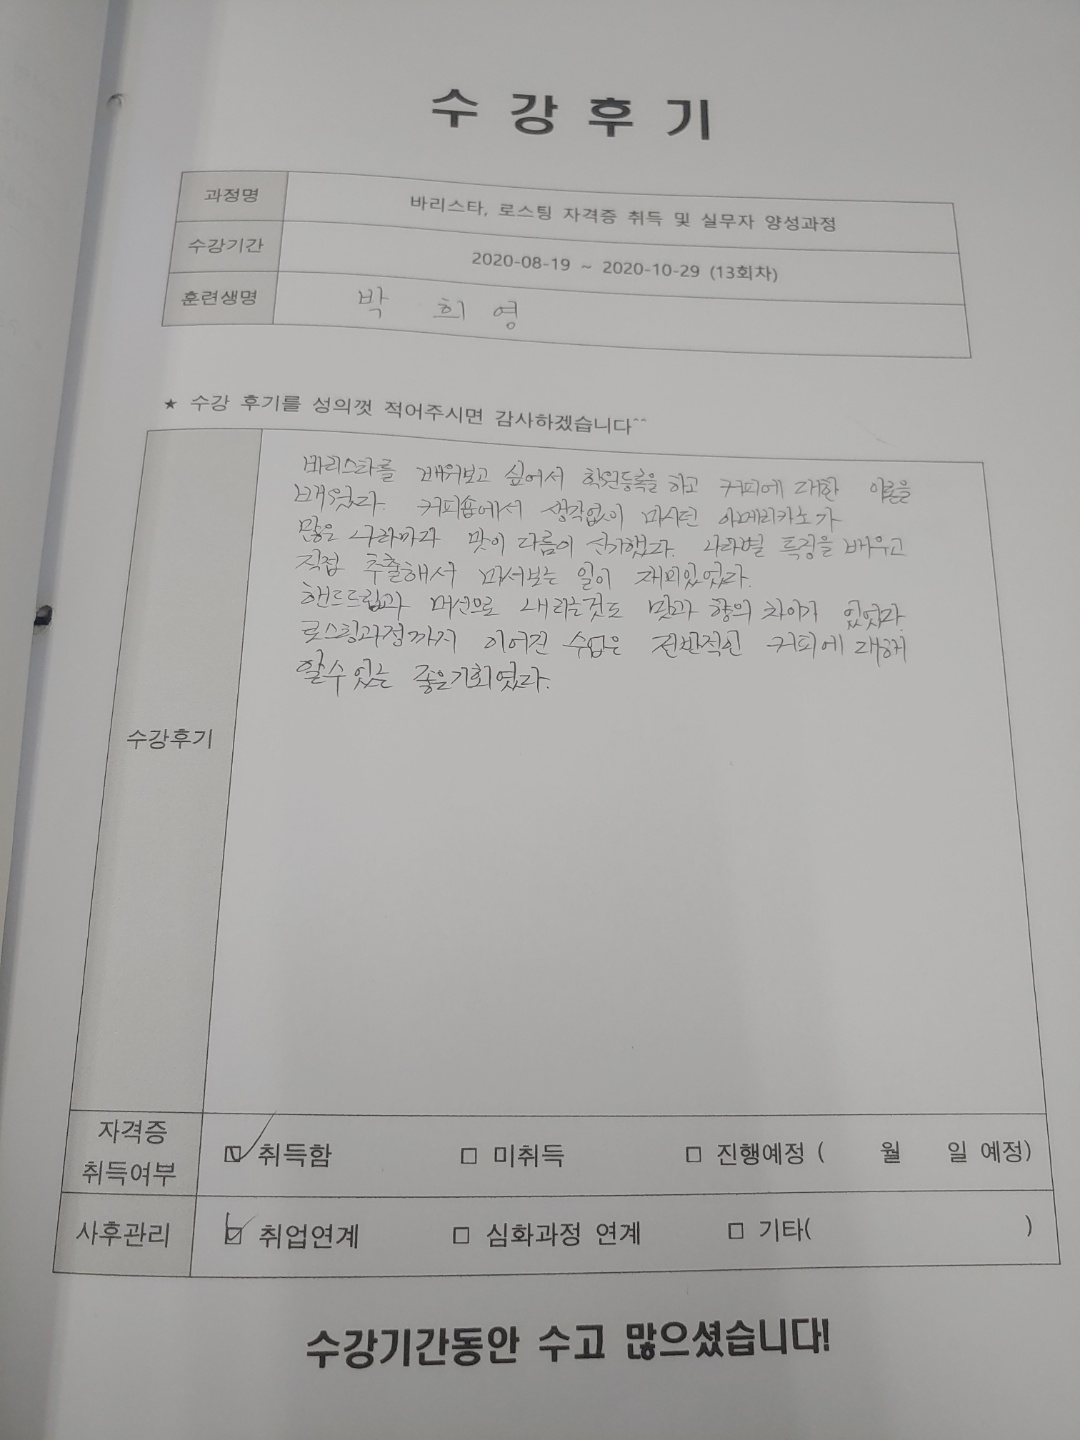 수 강 후 기
과정명 바리스타, 로스팅 자격증 취득 및 실무자 양성과정
수강기간 2020-08-19 ~ 2020-10-29 (13회차)
훈련생명 박 희 영
★ 수강 후기를 성의껏 적어주시면 감사하겠습니다^^
수강후기
바리스타를 배워보고 싶어서 학원등록을 하고 커피에 대한 이론을
배웠다. 커피숍에서 생각없이 마시던 아메리카노가
많은 나라마다 맛이 다름이 신기했다. 나라별 특징을 배우고
직접 추출해서 마셔보는 일이 재미있었다.
핸드드립과 머신으로 내리는것도 맛과 향의 차이가 있었다.
로스팅과정까지 이어진 수업은 전반적인 커피에 대해
알수 있는 좋은기회였다.
자격증 취득여부 ☑ 취득함 □ 미취득 □ 진행예정 ( 월 일 예정)
사후관리 ☑ 취업연계 □ 심화과정 연계 □ 기타( )
수강기간동안 수고 많으셨습니다!